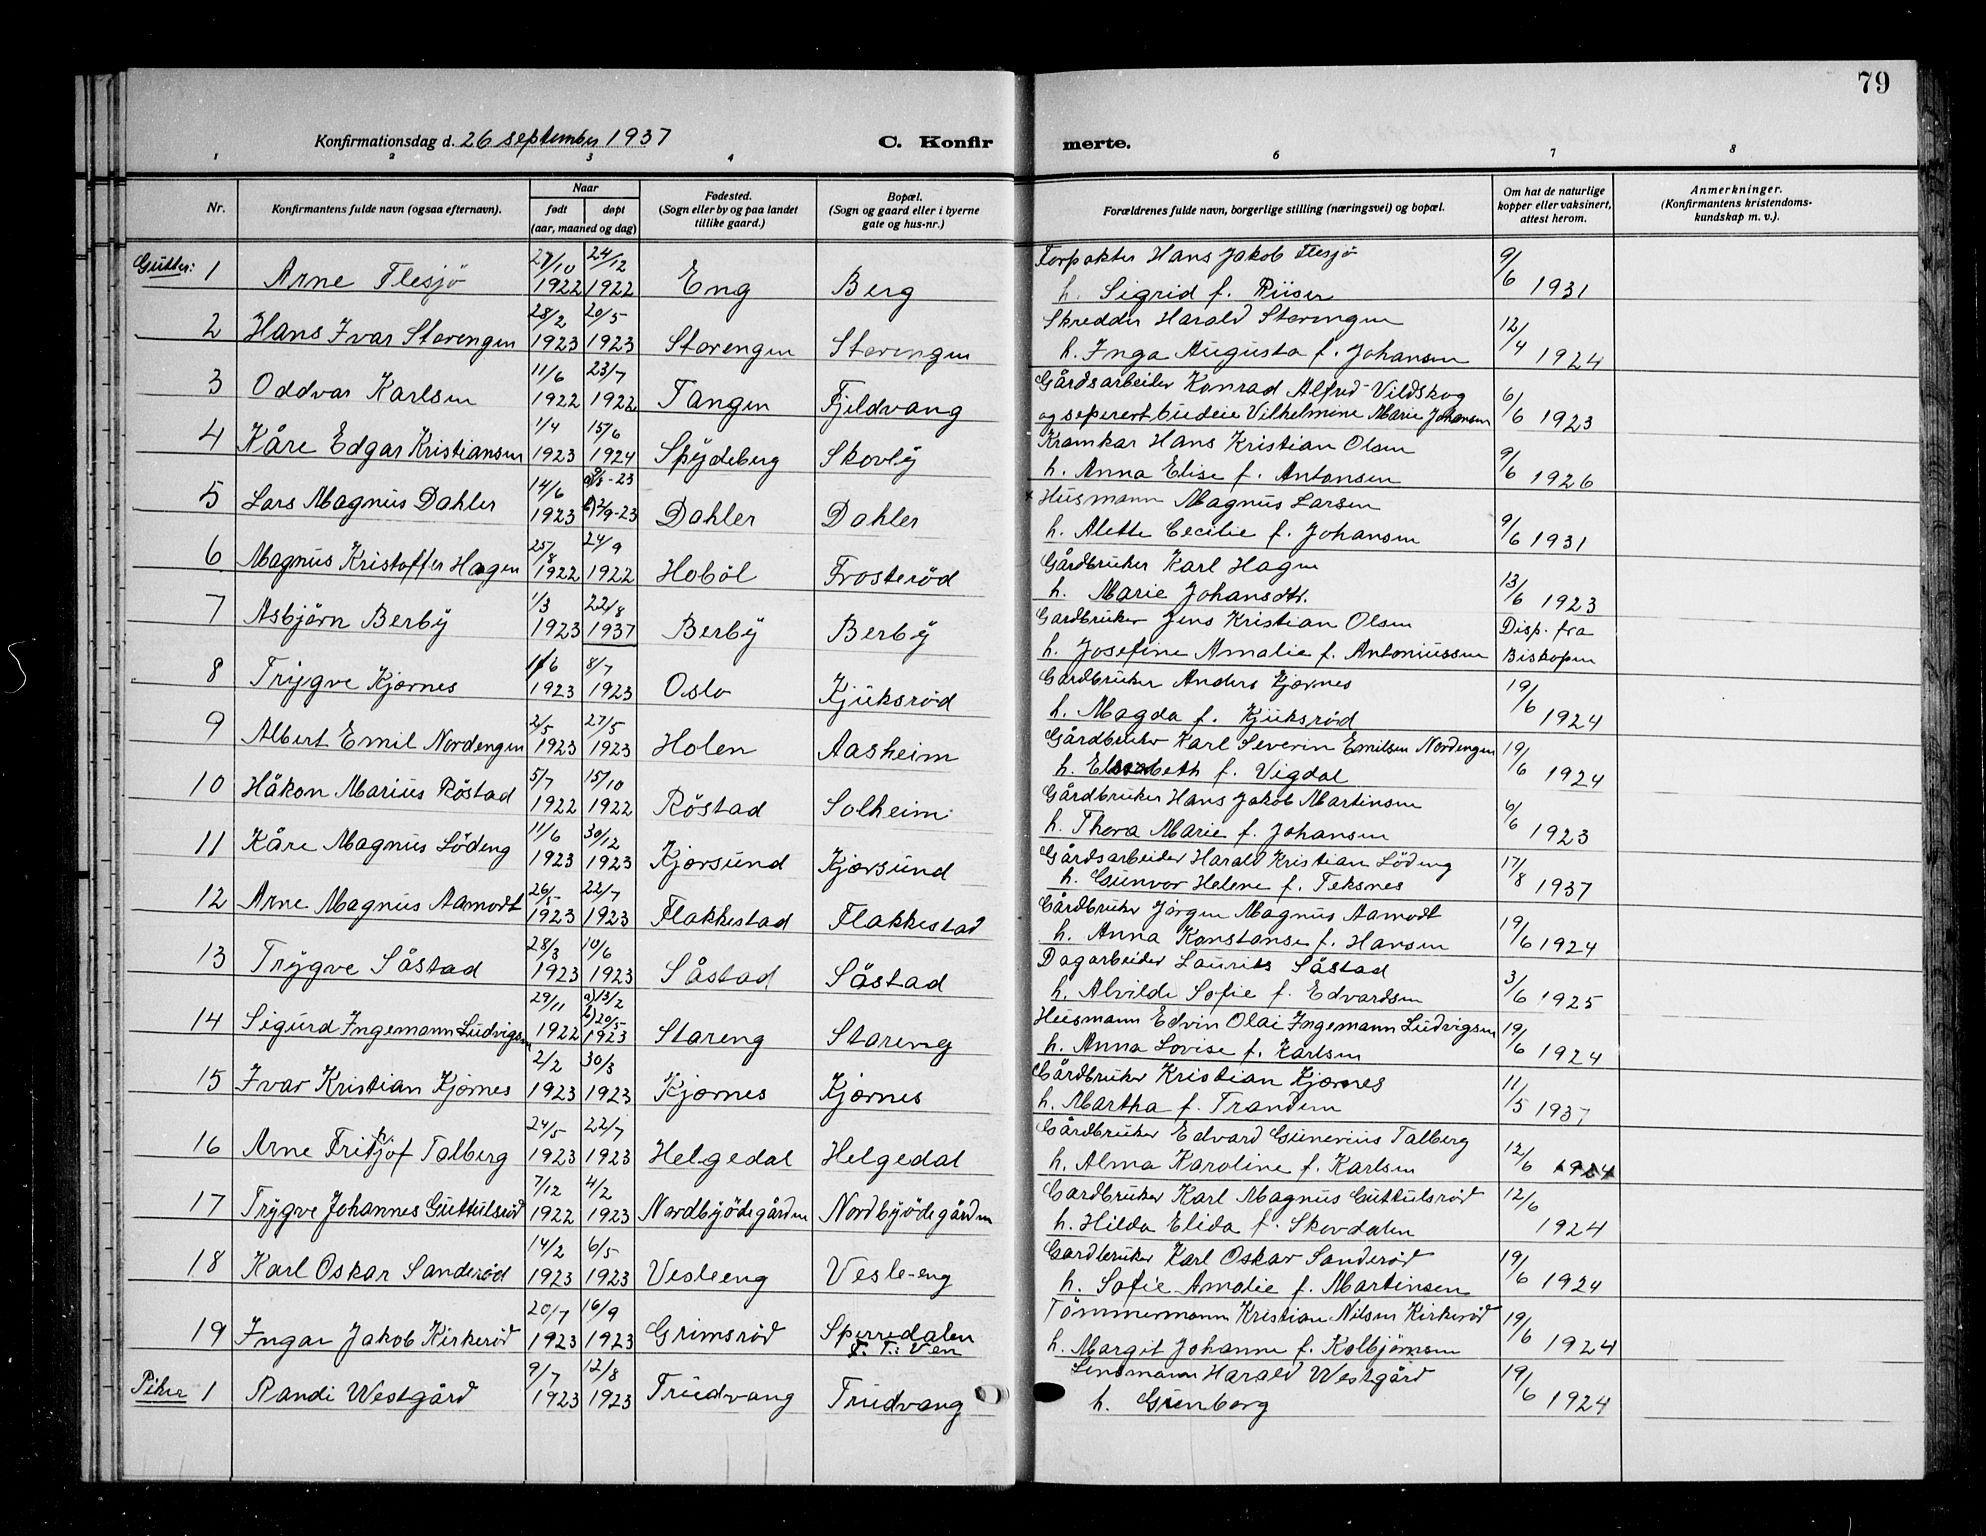 79
Konfirmationsdag d. 26 september 1937
C. Konfirmerte.
1 2 3 4 6 7 8
Nr.
Konfirmantens fulde navn (ogsaa efternavn).
Naar
født døpt
(aar, maaned og dag)
Fødested.
(Sogn eller by og paa landet
tillike gaard.)
Bopæl.
(Sogn og gaard eller i byerne
gate og hus-nr.)
Forældrenes fulde navn, borgerlige stilling (næringsvei) og bopæl.
Om hat de naturlige
kopper eller vaksinert,
attest herom.
Anmerkninger.
(Konfirmantens kristendoms-
kundskap m. v.)
Gutter: 1 Arne Flesjö 27/10 1922 24/12 1922 Eng Berg
Forpakter Hans Jakob Flesjö
h. Sigrid f. Riiser 9/6 1931
2 Hans Ivar Storengen 28/2 1923 20/5 1923 Storengen Storengen
Skredder Harald Storengen
h. Inga Augusta f. Johansen 12/4 1924
3 Oddvar Karlsen 11/6 1922 23/7 1922 Tangen Fjeldvang
Gårdsarbeider Konrad Alfred Vildskog
og seperert budeie Vilhelmine Marie Johansen 6/6 1923
4 Kåre Edgar Kristiansen 1/4 1923 15/6 1924 Spydeberg Skovly
Kramkar Hans Kristian Olsen
h. Anna Elise f. Antonsen 9/6 1926
5 Lars Magnus Dahler 14/6 1923 -23 b) 2/9-23 Dahler Dahler
x Husmann Magnus Larsen
h. Alette Cecilie f. Johansen 9/6 1931
6 Magnus Kristoffer Hagen 25/8 1922 24/9 1922 Hoböl Frosteröd
Gårdbruker Karl Hagen
h. Marie Johansdtr. 13/6 1923
7 Asbjörn Berby 1/3 1923 22/8 1937 Berby Berby
Gardbruker Jens Kristian Olsen
h. Josefine Amalie f. Antoniussen Disp. fra Biskopen
8 Trygve Kjærnes 1/6 1923 8/7 1923 Oslo Kjuksröd
Gardbruker Anders Kjærnes
h. Magda f. Kjuksröd 19/6 1924
9 Albert Emil Nordengen 2/5 1923 27/5 1923 Holen Aasheim
Gårdbruker Karl Severin Emilsen Nordengen
h. Elisabeth f. Vigdal 19/6 1924
10 Håkon Marius Röstad 5/7 1922 15/10 1922 Röstad Solheim
Gårdbruker Hans Jakob Martinsen
h. Thora Marie f. Johansen 6/6 1923
11 Kåre Magnus Lödeng 11/6 1923 30/12 1923 Kjærsund Kjærsund
Gårdsarbeider Harald Kristian Lödeng
h. Gunvor Helene f. Teksnes 17/8 1937
12 Arne Magnus Aamodt 26/5 1923 22/7 1923 Flakkestad Flakkestad
Gårdbruker Jørgen Magnus Aamodt
h. Anna Konstanse f. Hansen 19/6 1924
13 Trygve Såstad 28/3 1923 10/6 1923 Såstad Såstad
Dagarbeider Laurits Såstad
h. Alvilde Sofie f. Edvardsen 3/6 1925
14 Sigurd Ingemann Ludvigsen 29/11 1922 a) 13/2 b) 20/5 1923 Stareng Stareng
Husmann Edvin Olai Ingemann Ludvigsen
h. Anna Lovise f. Karlsen 19/6 1924
15 Ivar Kristian Kjærnes 2/2 1923 30/3 1923 Kjærnes Kjærnes
Gårdbruker Kristian Kjærnes
h. Martha f. Trandem 11/5 1937
16 Arne Frithjof Talberg 24/5 1923 22/7 1923 Helgedal Helgedal
Gårdbruker Edvard Gunerius Talberg
h. Alma Karoline f. Karlsen 12/6 1924
17 Trygve Johannes Guttulsröd 7/12 1922 4/2 1923 Nordbyödegården Nordbyödegården
Gardbruker Karl Magnus Guttulsröd
h. Hilda Elida f. Skovdalen 12/6 1924
18 Karl Oskar Sanderöd 14/2 1923 6/5 1923 Vesleeng Vesle-eng
Gardbruker Karl Oskar Sanderöd
h. Sofie Amalie f. Martinsen 19/6 1924
19 Ingar Jakob Kirkeröd 20/7 1923 16/9 1923 Grimsröd Sperredalen
F. T.: Ven
Tömmermann Kristian Nilsen Kirkeröd
h. Margit Johanne f. Kolbjörnsen 19/6 1924
Piker 1 Randi Westgård 9/7 1923 12/8 1923 Trudvang Trudvang
Lensmann Harald Westgård
h. Gunborg 19/6 1924